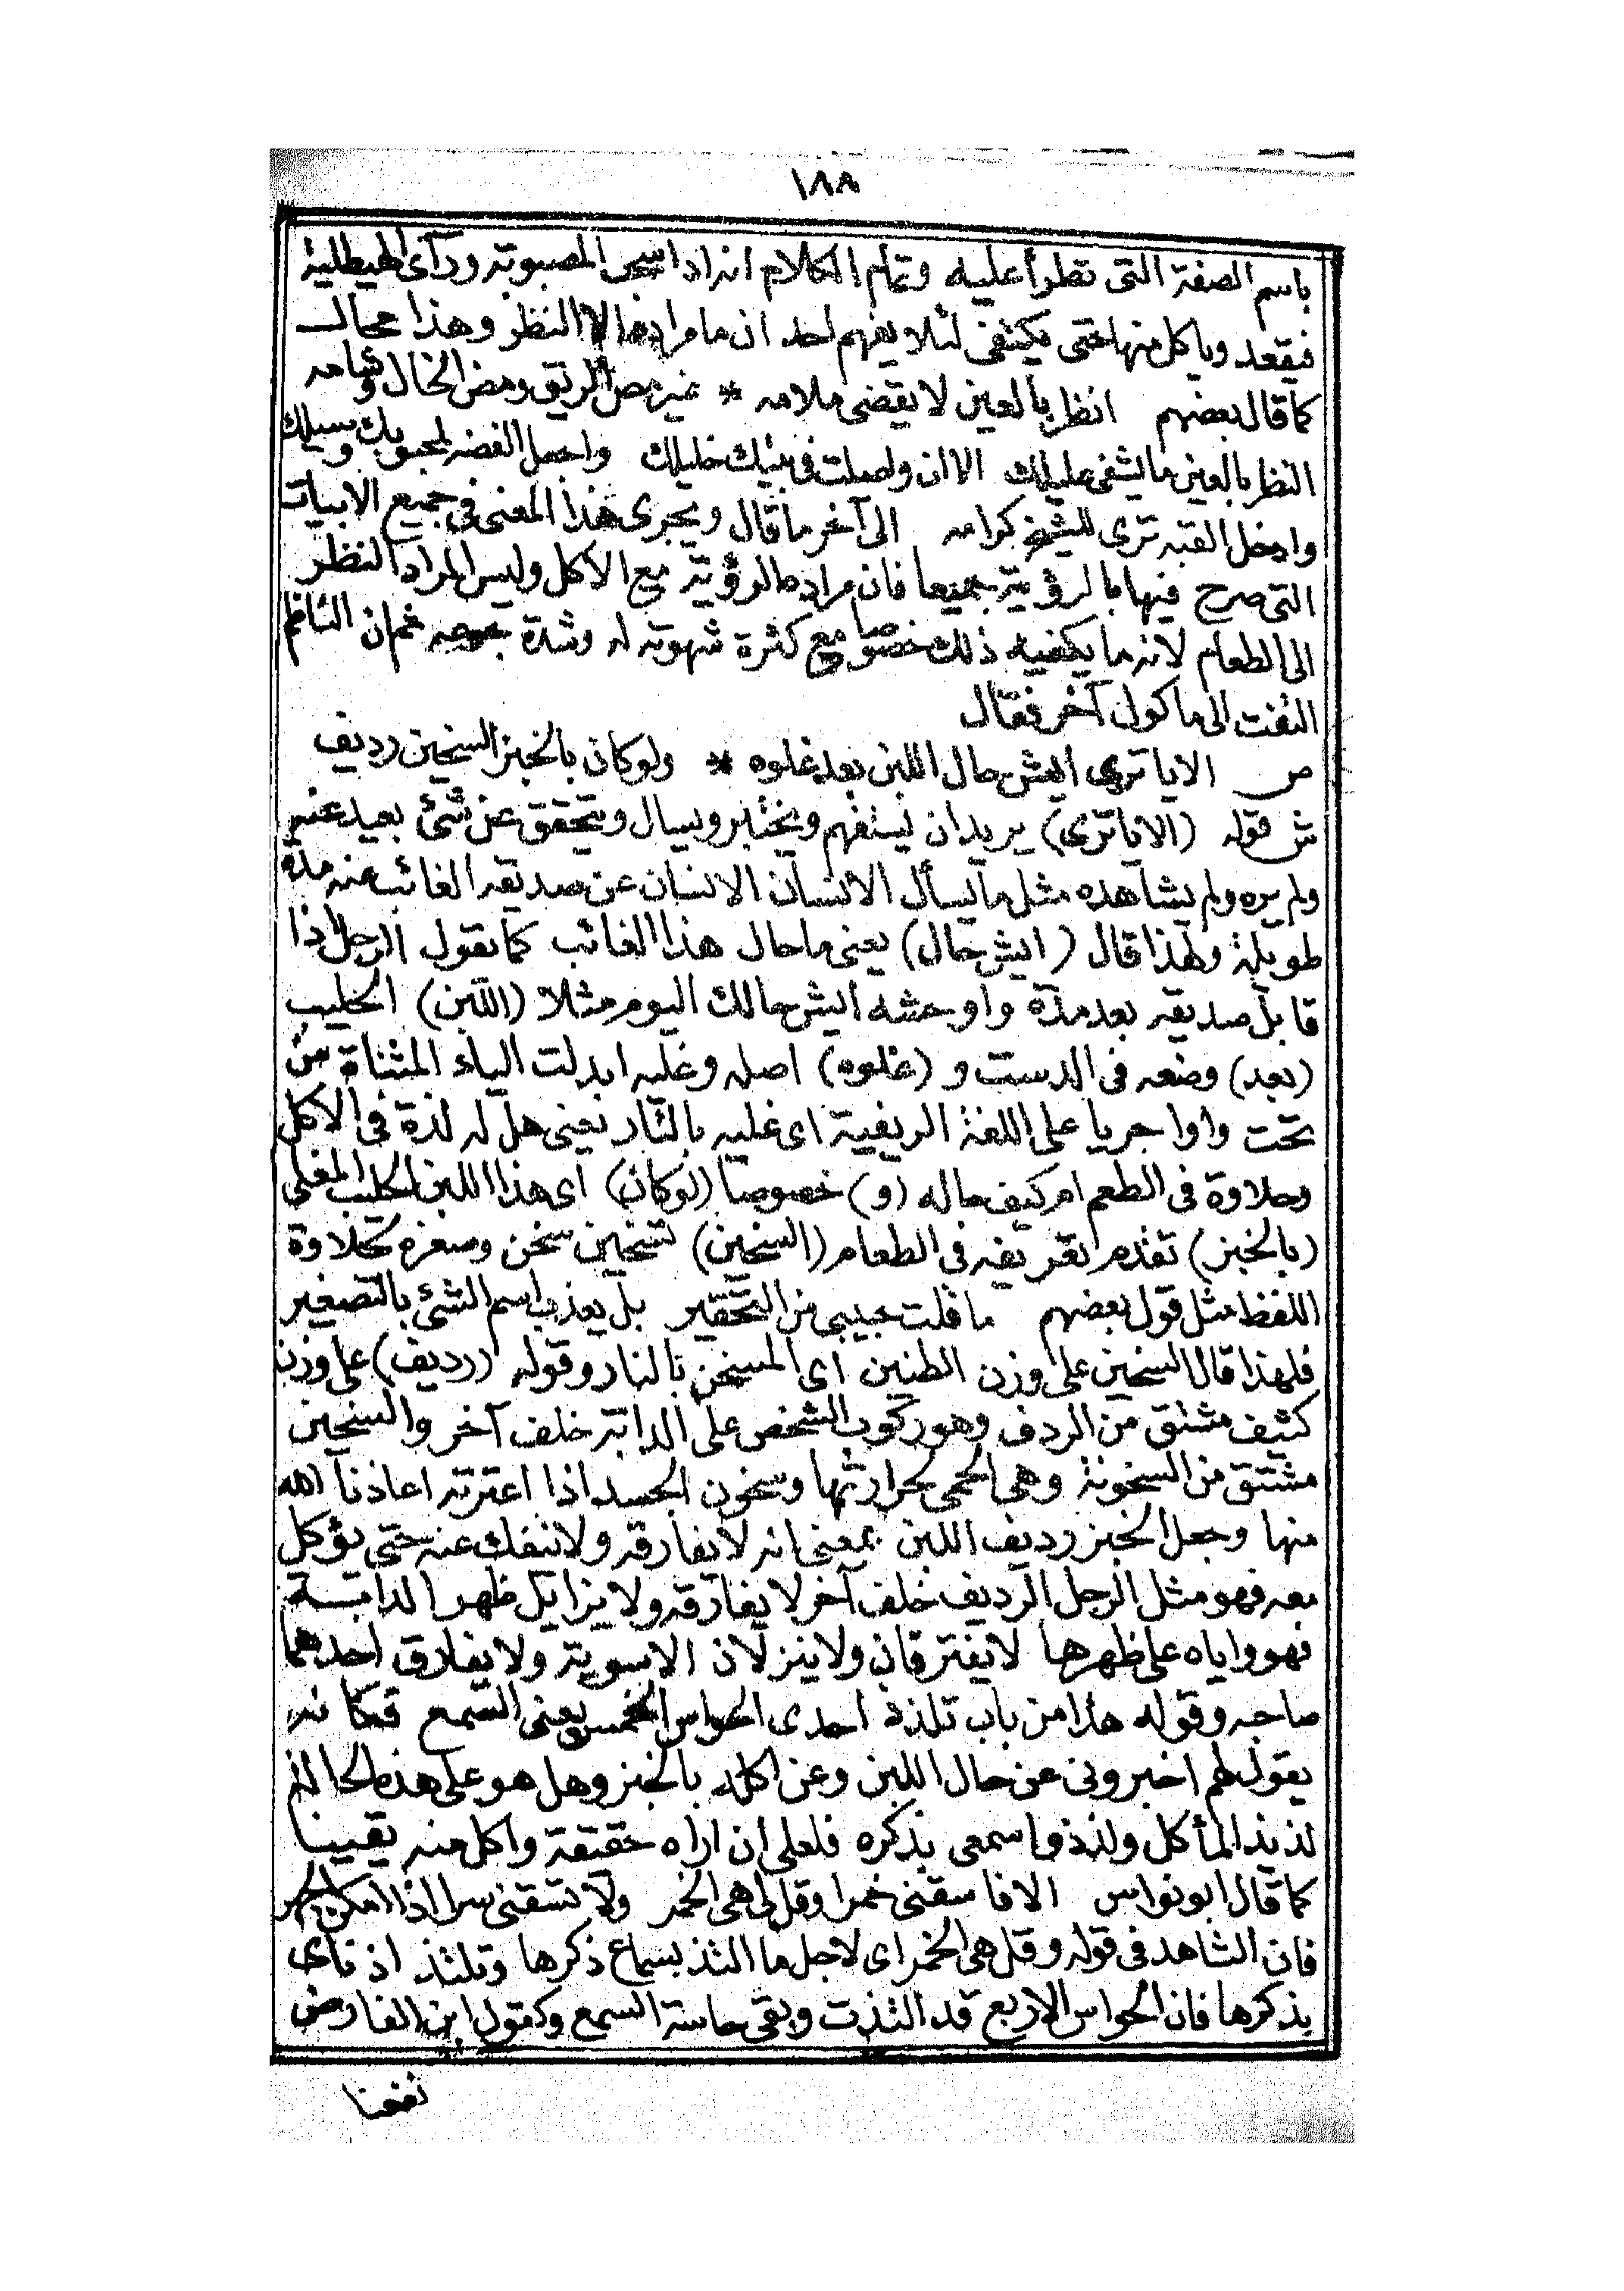 ١٨٨
باسم الصفة التى تطرأ عليه وتمام الكلام انه اذا سحى المصبوبة ورآى الهيطلية
فيقعد وياكل منها حتى يكتفى لئلا يفهم احد ان ما مراده الا النظر وهذا محال
كما قال بعضهم انظر بالعين لا يقضى ملامه * غير مص الريق ومص الخال وشامه
النظر بالعين ما يشفى عليلك الا ان واصلت فى بيتك خليلك واجعل الفضه لمحبوبك وسيلك
وادخل القبه ترى للشيخ كرامه الى آخر ما قال ويجرى هذا المعنى فى جميع الابيات
التى صرح فيها بالرؤية جميعا فان مراده الرؤية مع الاكل وليس المراد النظر
الى الطعام لانه ما يكفيه ذلك خصوصا مع كثرة شهوته له وشدة جوعه ثم ان الناظم
التفت الى ماكول آخر فقال
ص الايا ترى ايش حال اللبن بعد غلوه * ولو كان بالخبز السخين رديف
ش قوله (الايا ترى) يريد ان يستفهم ويختبر ويسال ويتحقق عن شئ بعيد عنه
ولم يره ولم يشاهده مثل ما يسأل الانسان الانسان عن صديقه الغائب عنه مدة
طويلة ولهذا قال (ايش حال) يعنى ما حال هذا الغائب كما يقول الرجل اذا
قابل صديقه بعد مدة واوحشه ايش حالك اليوم مثلا (اللبن) الحليب
(بعد) وضعه فى الدست و (غلوه) اصله وغليه ابدلت الياء المثناة من
تحت واوا جريا على اللغة الريفية اى غليه بالنار يعنى هل له لذة فى الاكل
وحلاوة فى الطعم ام كيف حاله (و) خصوصا (لوكان) اى هذا اللبن الحليب المغلى
(بالخبز) تقدم تعريفه فى الطعام (السخين) تسخين سخن وصغره لحلاوة
اللفظ مثل قول بعضهم ما قلت حبيبى من التحقير بل يعذب اسم الشئ بالتصغير
فلهذا قال السخين على وزن الطنين اى المسخن بالنار وقوله (رديف) على وزن
كثيف مشتق من الردف وهو ركوب الشخص على الدابة خلف آخر والسخين
مشتق من السخونة وهى الحمى لحرارتها وسخون الجسد اذا اعترته اعاذنا الله
منها وجعل الخبز رديف اللبن بمعنى انه لا يفارقه ولا ينفك عنه حتى يؤكل
معه فهو مثل الرجل الرديف خلف آخر لا يفارقه ولا يزايل ظهر الدابة
فهو واياه على ظهرها لا يفترقان ولا ينزلان الا سوية ولا يفارق احدهما
صاحبه وقوله هذا من باب تلذذ احدى الحواس الخمس يعنى السمع فكانه
يقول لهم اخبرونى عن حال اللبن وعن اكله بالخبز وهل هو على هذه الحالة
لذيذ المأكل ولذذوا سمعى بذكره فلعلى ان اراه حقيقة واكل منه يقينا
كما قال ابو نواس الا فاسقنى خمرا وقل لى هى الخمر ولا تسقنى سرا اذا امكن الجهر
فان الشاهد فى قوله وقل هى الخمر اى لاجل ما التذ بسماع ذكرها وتلتذ اذناى
بذكرها فان الحواس الاربع قد التذت وبقى حاسة السمع وكقول ابن الفارض
نفعنا